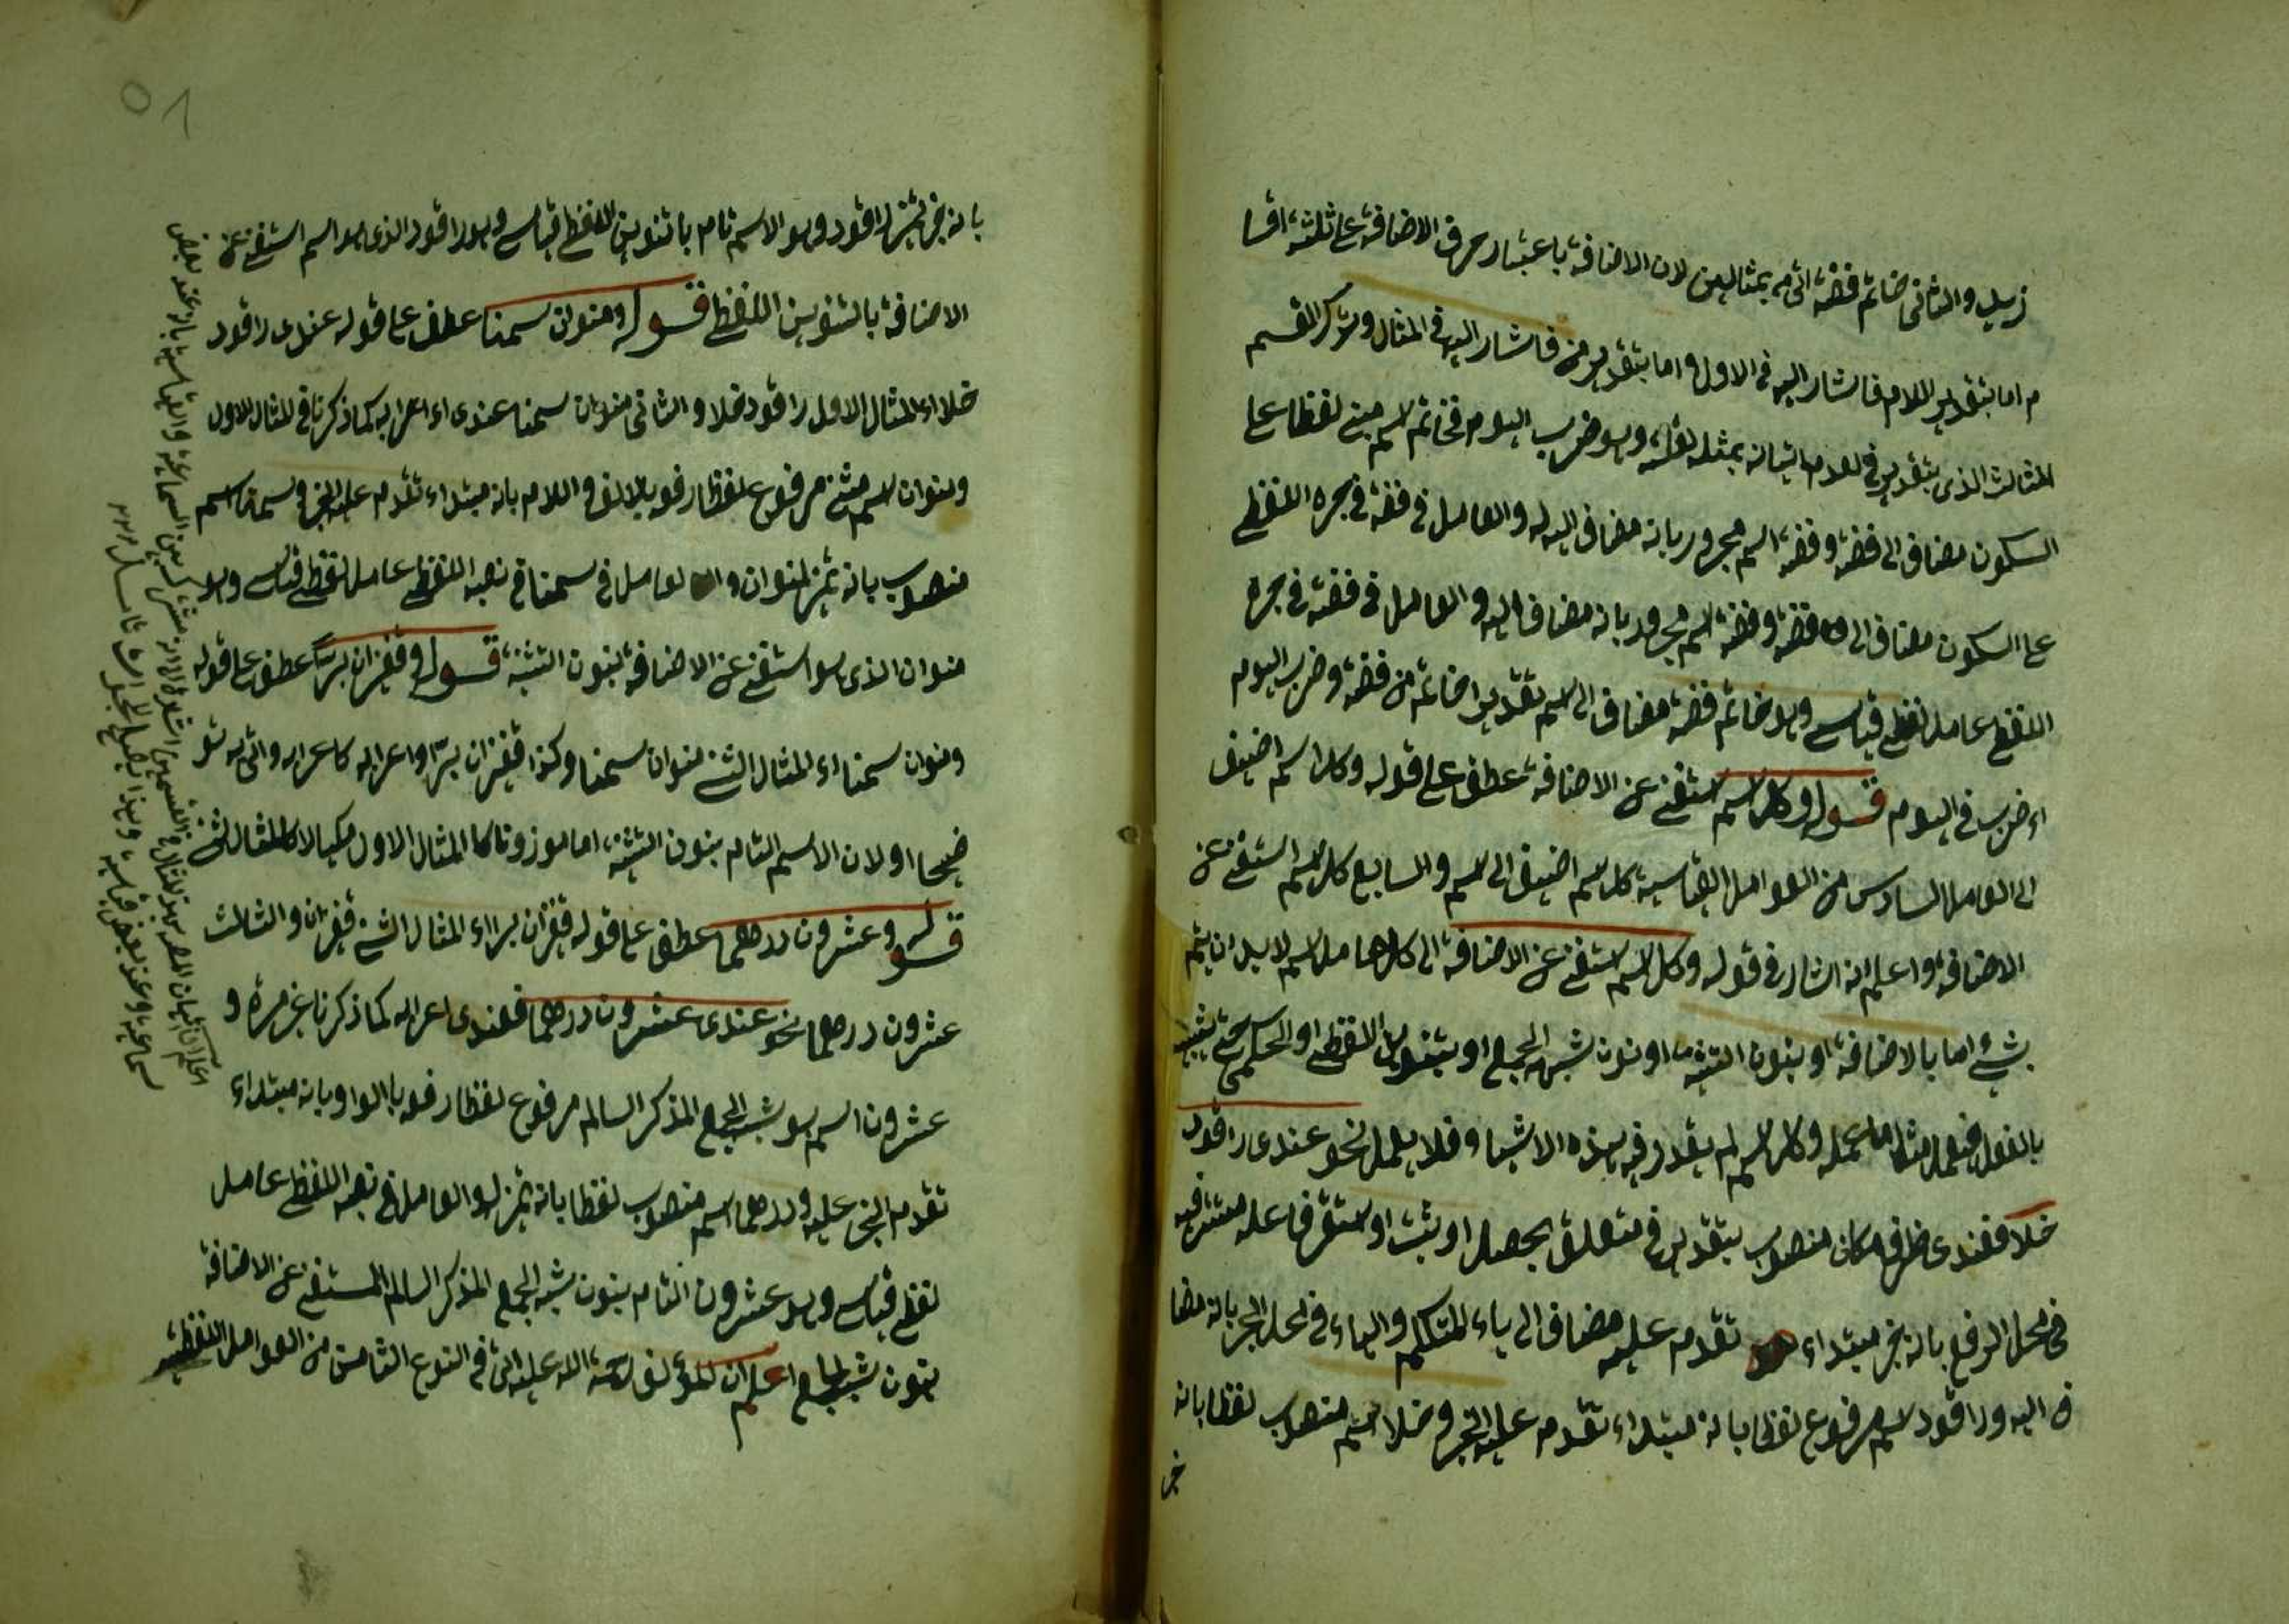 زيد والثاني خاتم فضة اتى به بمثالين لان الاضافة باعتبار حرف الاضافة على ثلثة اقسا
م اما بتقدير اللام فاشار اليه في الاول واما بتقدير من فاشار اليه في المثال وترك القسم
الثالث الذي بتقدير في لعدم اتيانه بمثله لقلته وهو ضرب اليوم فخاتم اسم مبني لفظا على
السكون مضاف الى فضة وفضة اسم مجرور بانه مضاف اليه له والعامل في فضة في جره اللفظي
على السكون مضاف الى فضة وفضة اسم مجرور بانه مضاف اليه والعامل في فضة في جره
اللفظي عامل لفظي قياسي وهو خاتم فضة مضاف الى اسم تقديره خاتم من فضة وضرب اليوم
اى ضرب في اليوم قوله وكل اسم استغنى عن الاضافة عطف على قوله وكل اسم اضيف
الى العامل السادس من العوامل القياسية كل اسم اضيف الى اسم والسابع كل اسم استغنى عن
الاضافة واعلم انه اشار في قوله وكل اسم استغنى عن الاضافة الى كل عامل اسم لا بد ان يتم
بشئ اما بالاضافة او بنون التثنية او نون شبه الجمع او بتنوين اللفظي او الحكمي حتى يشبه
بالفعل فيعمل مثل عمله وكل اسم لم يقدر فيه هذه الاشياء فلا يعمل نحو عندى راقود
خلا فعندى ظرف مكان منصوب بتقدير في متعلق بحصل او ثبت او استقر فاعله مستتر فيه
في محل الرفع بانه خبر مبتداء تقدم عليه مضاف الى ياء المتكلم والياء في محل الجر بانه مضا
ف اليه وراقود اسم مرفوع لفظا بانه مبتداء تقدم عليه الخبر وخلا اسم منصوب لفظا بانه
بانه تميز لراقود وهو الاسم تام باتنوين اللفظي قياسي وهو راقود الذى هو اسم استغنى عن
الاضافة بالتنوين اللفظي قوله ومنوان سمنا عطف على قوله عندى راقود
خلا اى المثال الاول راقود خلا والثاني منوان سمنا عندى اى اعرابه كما ذكرنا في المثال الاول
ومنوان اسم مثنى مرفوع لفظا رفعه بالالف واللام بانه مبتداء تقدم عليه الخبر وسمنا اسم
منصوب بانه تميز لمنوان والعامل في سمنا في نصبه اللفظي عامل لفظي قياسي وهو
منوان الذى هو استغنى عن الاضافة بنون التثنية قوله وقفيزان برا عطف على قوله
ومنوان سمنا اى المثال الثنى منوان سمنا وكذا قفيزان برا واعرابه كاعرابه واتى به تو
ضيحا او لان الاسم التام بنون التثنية اما موزونا كالمثال الاول مكيالا كالمثال الثنى
قوله وعشرون درهما عطف على قوله قفيزان برا اى المثال الثنى قفيزان والثالث
عشرون درهما نحو عندى عشرون درهما فعندى اعرابه كما ذكرنا غير مرة و
عشرون اسم هو شبه الجمع المذكر السالم مرفوع لفظا رفعه بالواو بانه مبتداء
تقدم الخبر عليه ودرهما اسم منصوب لفظا بانه تميز له والعامل في نصبه اللفظي عامل
لفظي قياسي وهو عشرون التام بنون شبه الجمع المذكر السالم المستغنى عن الاضافة
بنون شبه الجمع اعلم ان المؤلف رحمة الله عليه اتى في النوع الثامن من العوامل اللفظية